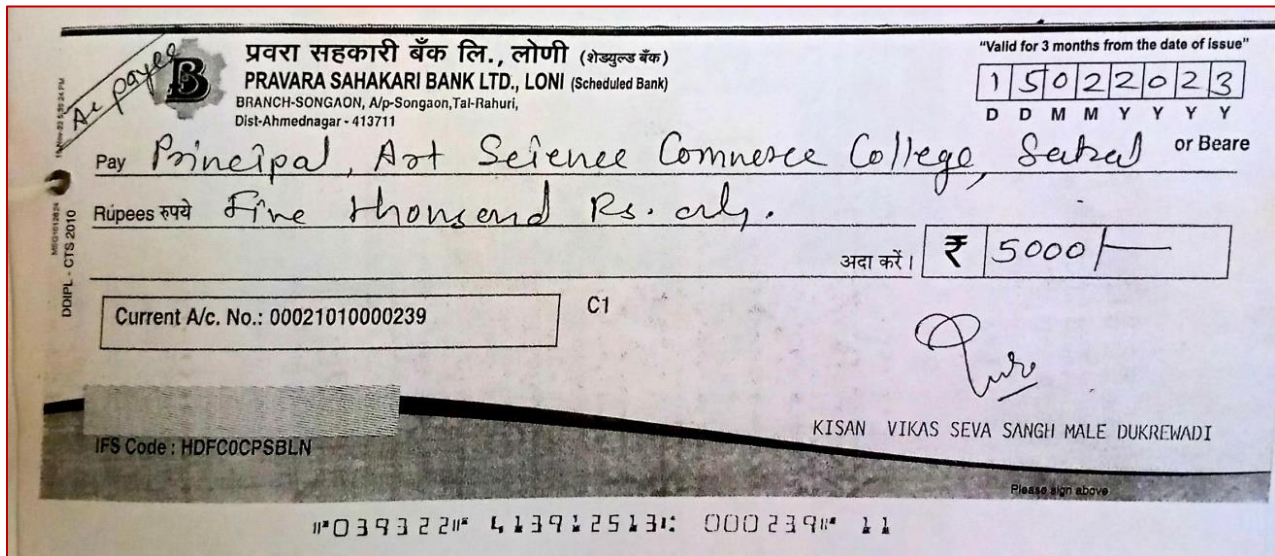 A/c payee
B
प्रवरा सहकारी बँक लि., लोणी (शेड्युल्ड बँक)
PRAVARA SAHAKARI BANK LTD., LONI (Scheduled Bank)
BRANCH-SONGAON, A/p-Songaon,Tal-Rahuri,
Dist-Ahmednagar - 413711
"Valid for 3 months from the date of issue"
1 5 0 2 2 0 2 3
D D M M Y Y Y Y
Pay Principal, Art Science Commerce College, or Beare
Rupees रुपये Five thousand Rs. only.
अदा करें। ₹ 5000/-
DDIPL - CTS 2010
Current A/c. No.: 00021010000239
C1
IFS Code : HDFC0CPSBLN
KISAN VIKAS SEVA SANGH MALE DUKREWADI
Please sign above
⑈039322⑈ 413912513⑆ 000239⑈ 11